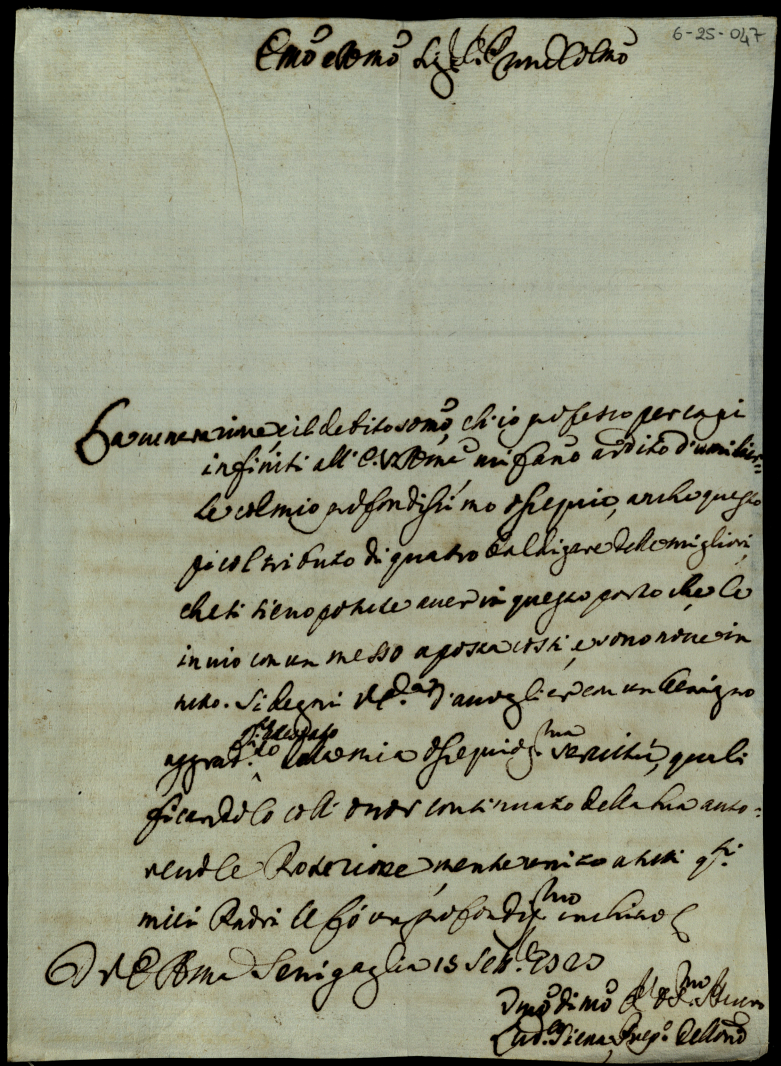 6-25-047
Emo e Rmo Sig.r
La venerazione, e il debito somo, ch'io professo per capi
infiniti all' E. V. Rma mi fano ardito d'umiliar=
le col mio profondissimo ossequio, anche questo
picol tributo di quatro delle migliori,
che si sieno potute aver in questo porto che le
invio con un messo aposta costì, e sono nove in
tutto. Si degni d'acoglier con un benigno
aggrad.to la mia ossequios.ma servitù, quali
ficandolo coll' onor continuato della sua auto=
revole Protezione, mentre unito a tutti q.ti
miei Padri le fò un profondis.mo inchino
D V E Rma Senigaglia 15 Set.
Umo Dimo
Lud. Siena Prep.o dell'Orio